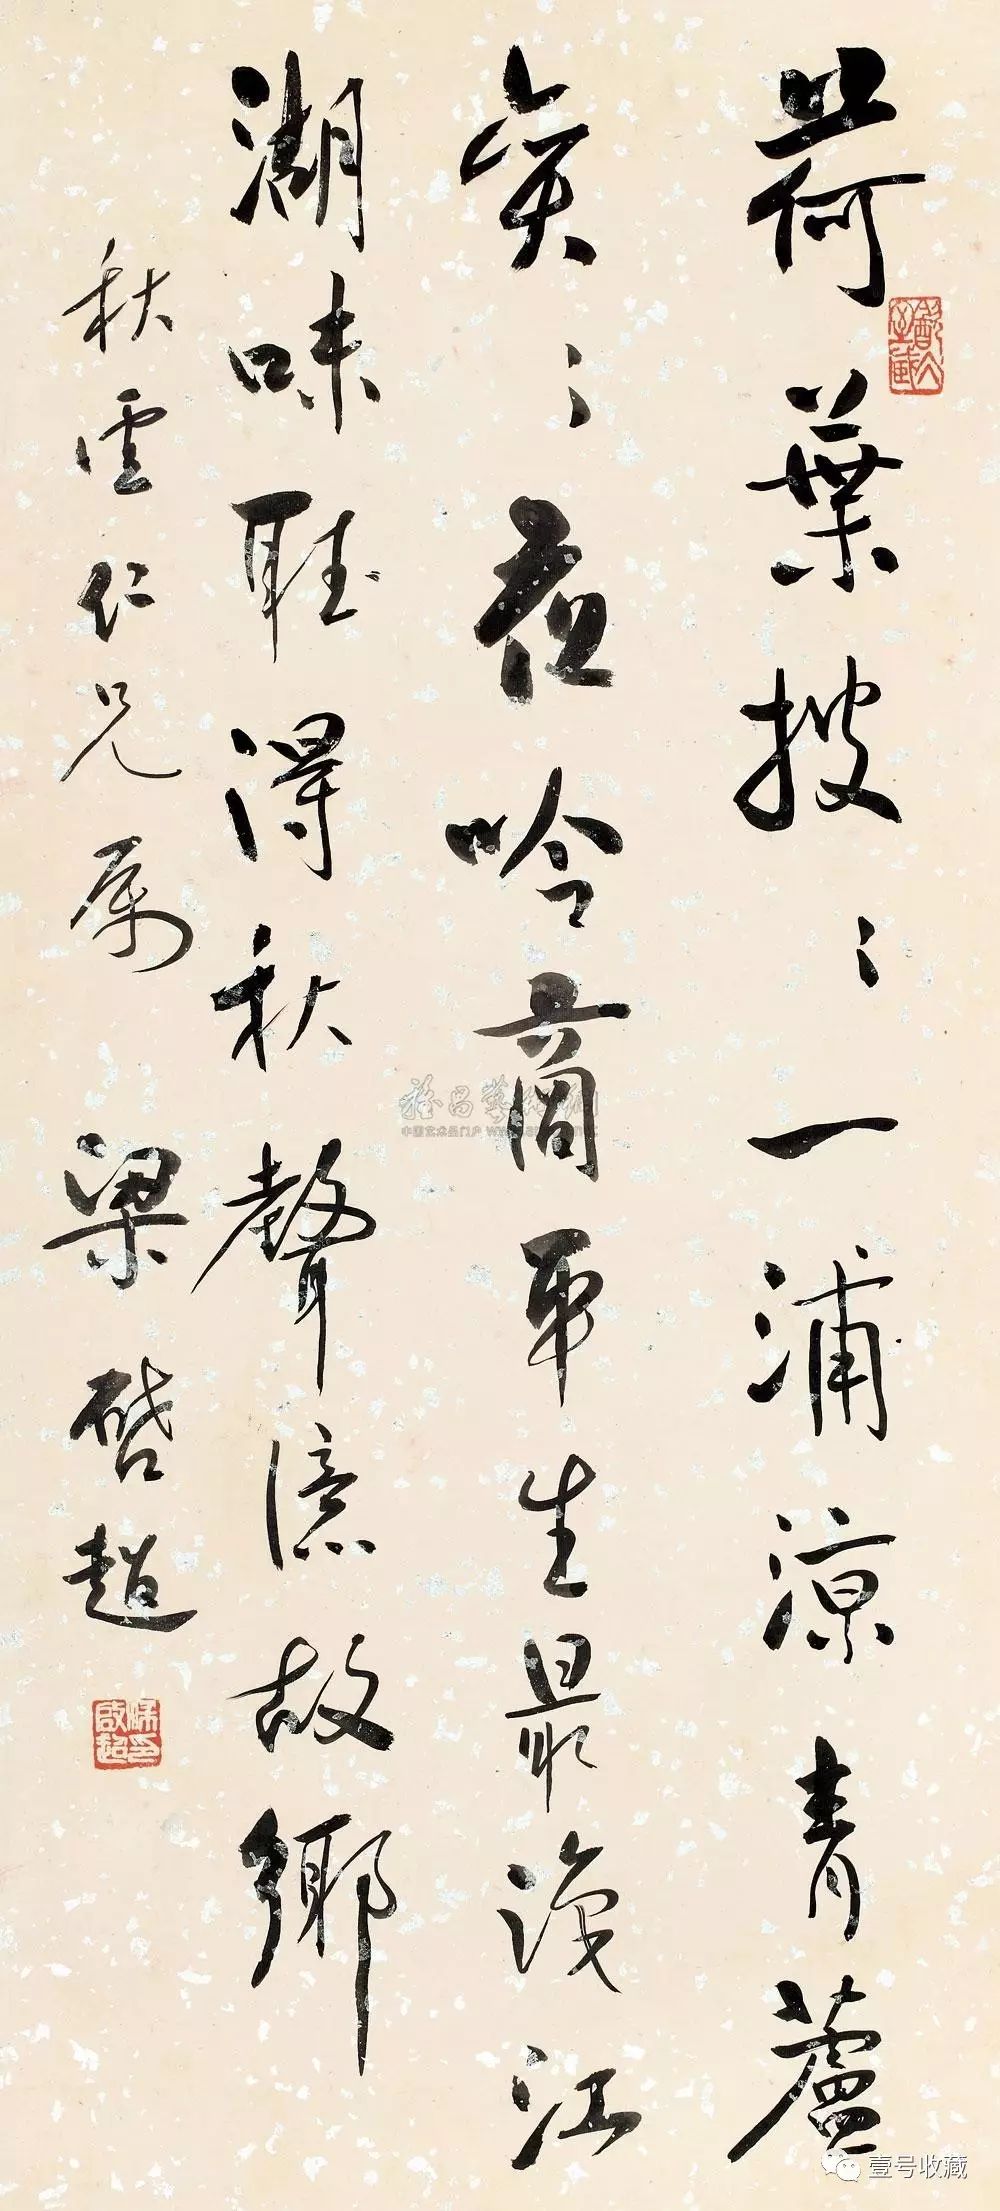 荷葉披〻一浦涼青蘆
奕〻夜吟商平生最識江
湖味聽得秋聲憶故鄉
秋雲仁兄屬 梁啓超
雅昌藝術網
壹号收藏